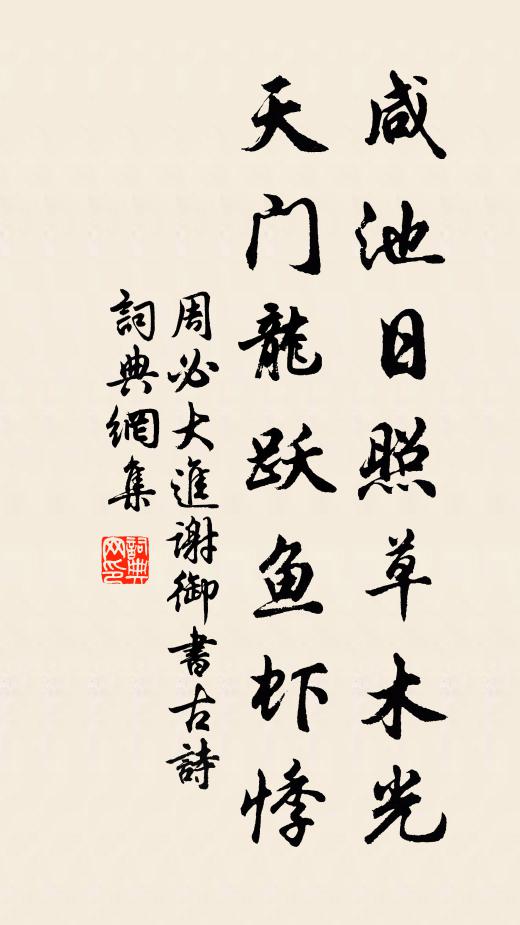 咸池日照草木光
天门龍跃鱼虾悸
周必大進谢御書古詩
詞典網集
詞典
网印